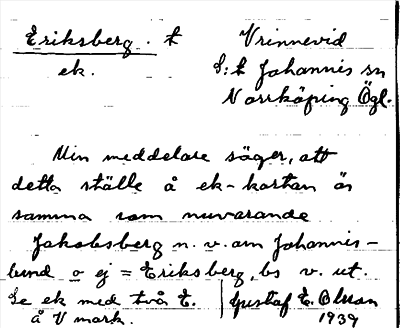 Eriksberg. t
Vrinnevid
ek.
S:t Johannis sn
Norrköping Ögl.
Min meddelare säger, att
detta ställe å ek-kartan är
samma som nuvarande
Jakobsberg n. v. om Johannis-
lund o ej = Eriksberg, bs v. ut.
Se ek med två E.
å V mark.
Gustaf E. Olsson
1939